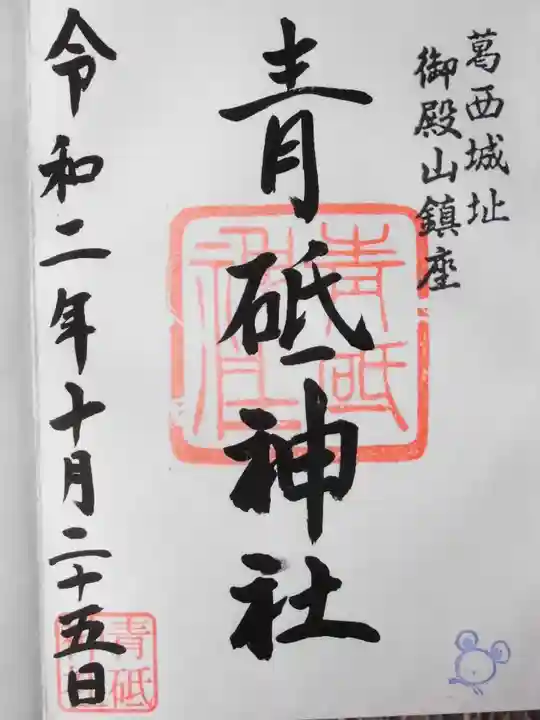 葛西城址
御殿山鎮座
青砥神社
青砥神社
令和二年十月二十五日
青砥神社